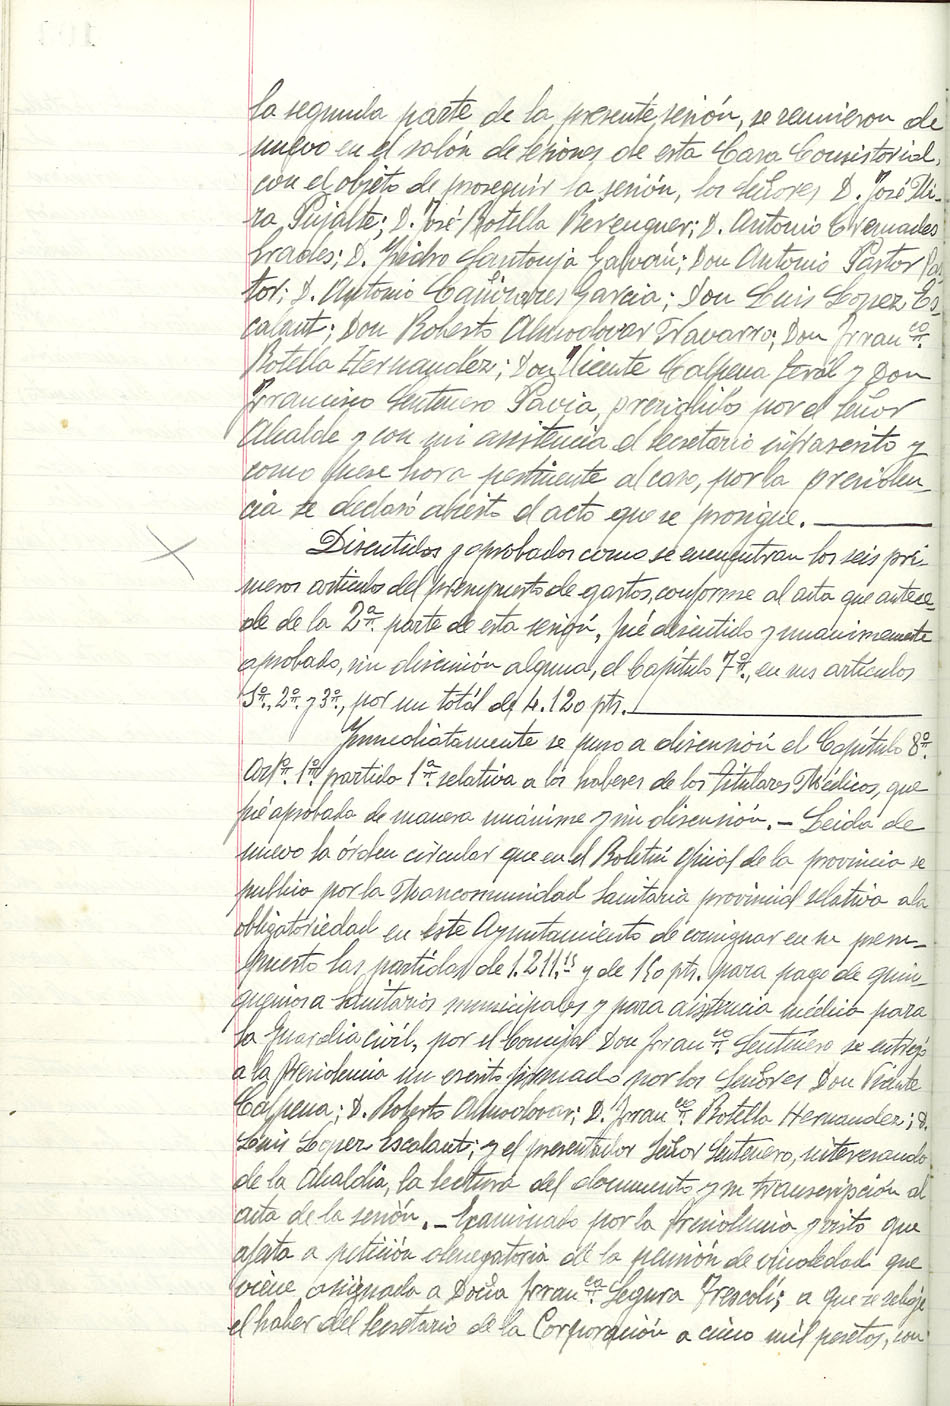 la segunda parte de la presente sesión, se reunieron de
nuevo en el salón de sesiones de esta Casa Consistorial,
con el objeto de proseguir la sesión, los Señores D. José Mi-
ra Pujalte; D. José Botella Berenguer; D. Antonio Cremades
Prades; D. Ysidro Santonja Galván; Don Antonio Pastor Pas
tor; D. Antonio Cañizares Garcia; Don Luis Lopez Es-
calant; Don Roberto Almodovar Navarro; Don Fran.co
Botella Hernandez; Don Vicente Calpena Jerál y Don
Francisco Sentenero Pavia, presididos por el Señor
Alcalde y con mi asistencia el Secretario infrascrito y
como fuese hora pertinente al caso, por la presiden-
cia se declaró abierto el acto que se prosigue.
Discutidos y aprobados como se encuentran los seis pri-
meros articulos del presupuesto de gastos, conforme al acta que antece-
de de la 2ª. parte de esta sesión, fué discutido y unanimemente
aprobado, sin discusión alguna, el Capítulo 7º., en sus articulos
1º., 2º. y 3º., por un totál de 4.120 pts.
Ynmediatamente se puso a discusión el Capítulo 8º.
Artº. 1º. partida 1ª. relativa a los haberes de los titulares Médicos, que
fué aprobada de manera unánime y sin discusión. - Leida de
nuevo la órden circular que en el Boletin Oficial de la provincia se
publica por la Mancomunidad Sanitaria provincial relativa a la
obligatoriedad en este Ayuntamiento de consignar en su presu-
puesto las partidas de 1.211,15 y de 150 pts. para pago de quin-
quenios a Sanitarios municipales y para asistencia médica para
la Guardia civil, por el Concejal Don Fran.co Sentenero se entregó
a la Presidencia un escrito firmado por los Señores Don Vicente
Calpena; D. Roberto Almodovar; D. Fran.co Botella Hernandez; D.
Luis Lopez Escalant; y el presentador Señor Sentenero, interesando
de la Alcaldia, la lectura del documento y su transcripción al
acta de la sesión. - Examinado por la Presidencia y visto que
afecta a petición denegatoria de la pensión de viudedad que
viene asignada a Doña Fran.ca Segura Frescoli; a que se rebaje
el haber del Secretario de la Corporación a cinco mil pesetas, con